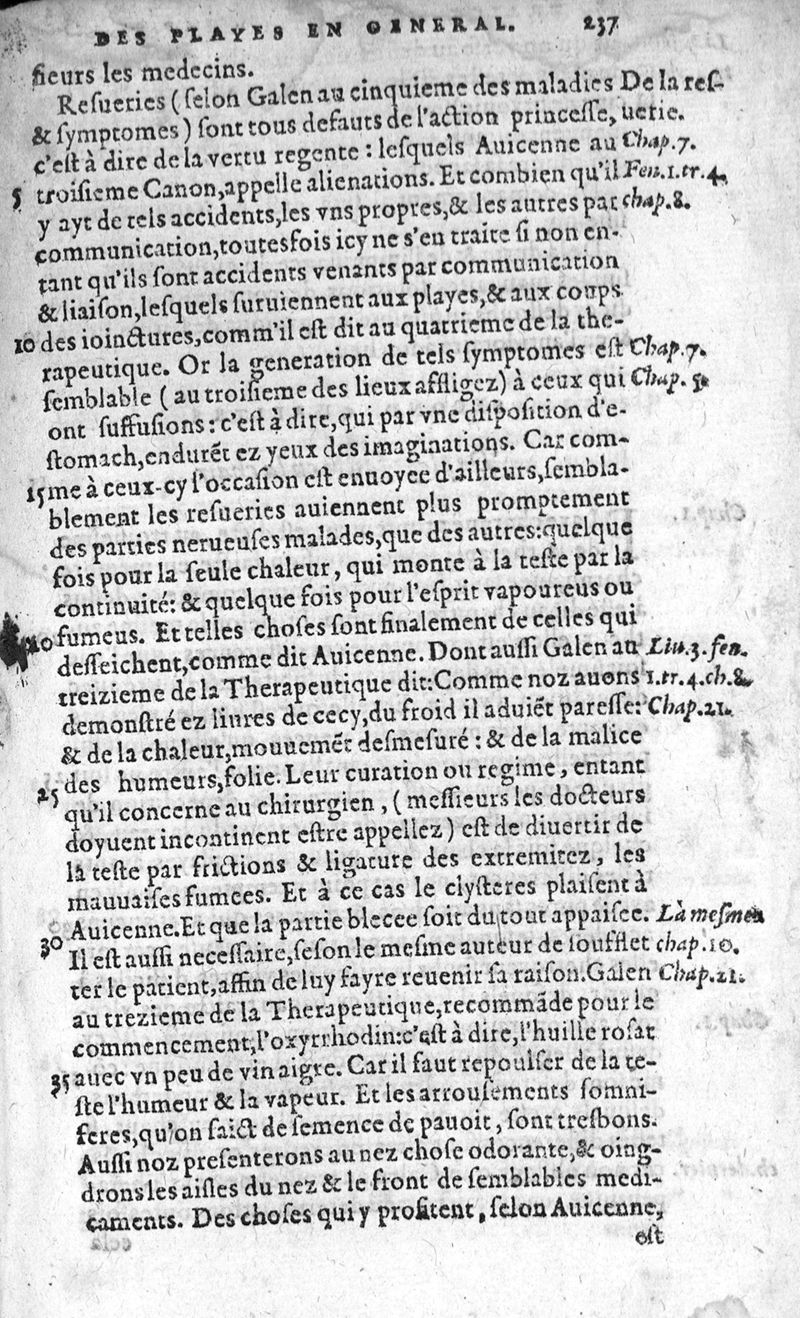 DES PLAYES EN GENERAL. 237
sieurs les medecins.
Resueries (selon Galen au cinquieme des maladies De la res-
& symptomes) sont tous defauts de l'action princesse, uerie.
c'est à dire de la vertu regente : lesquels Auicenne au Chap.7.
5 troisieme Canon,appelle alienations. Et combien qu'il Fen.1.tr.4.
y ayt de tels accidents,les vns propres,& les autres par chap.8.
communication,toutesfois icy ne s'en traite si non en-
tant qu'ils sont accidents venants par communication
& liaison,lesquels suruiennent aux playes,& aux coups
10 des ioinctures,comm'il est dit au quatrieme de la the-
rapeutique. Or la generation de tels symptomes est Chap.7.
semblable ( au troisieme des lieux affligez) à ceux qui Chap. 5.
ont suffusions: c'est à dire,qui par vne disposition d'e-
stomach,endurẽt ez yeux des imaginations. Car com-
15 me à ceux-cy l'occasion est enuoyee d'ailleurs,sembla-
blement les resueries auiennent plus promptement
des parties nerueuses malades,que des autres:quelque
fois pour la seule chaleur, qui monte à la teste par la
continuité: & quelque fois pour l'esprit vapoureus ou
20 fumeus. Et telles choses sont finalement de celles qui
desseichent,comme dit Auicenne. Dont aussi Galen au Liu.3.fen.
treizieme de la Therapeutique dit:Comme noz auons 1.tr.4.ch.8.
demonstré ez liures de cecy,du froid il aduiẽt paresse: Chap.21.
& de la chaleur,mouuemẽt desmesuré : & de la malice
25 des humeurs,folie. Leur curation ou regime, entant
qu'il concerne au chirurgien , (messieurs les docteurs
doyuent incontinent estre appellez) est de diuertir de
la teste par frictions & ligature des extremitez, les
mauuaises fumees. Et à ce cas le clysteres plaisent à
Auicenne.Et que la partie blecee soit du tout appaisee. La mesme
30 Il est aussi necessaire,seson le mesme auteur de soufflet chap.10.
ter le patient,affin de luy fayre reuenir sa raison.Galen Chap.21.
au trezieme de la Therapeutique,recommãde pour le
commencement,l'oxyrrhodin:c'est à dire,l'huille rosat
35 auec vn peu de vinaigre. Car il faut repoulser de la te-
ste l'humeur & la vapeur. Et les arrousements somni-
feres,qu'on faict de semence de pauoit, sont tresbons.
Aussi noz presenterons au nez chose odorante,& oing-
drons les aisles du nez & le front de semblables medi-
caments. Des choses qui y profitent, selon Auicenne,
est